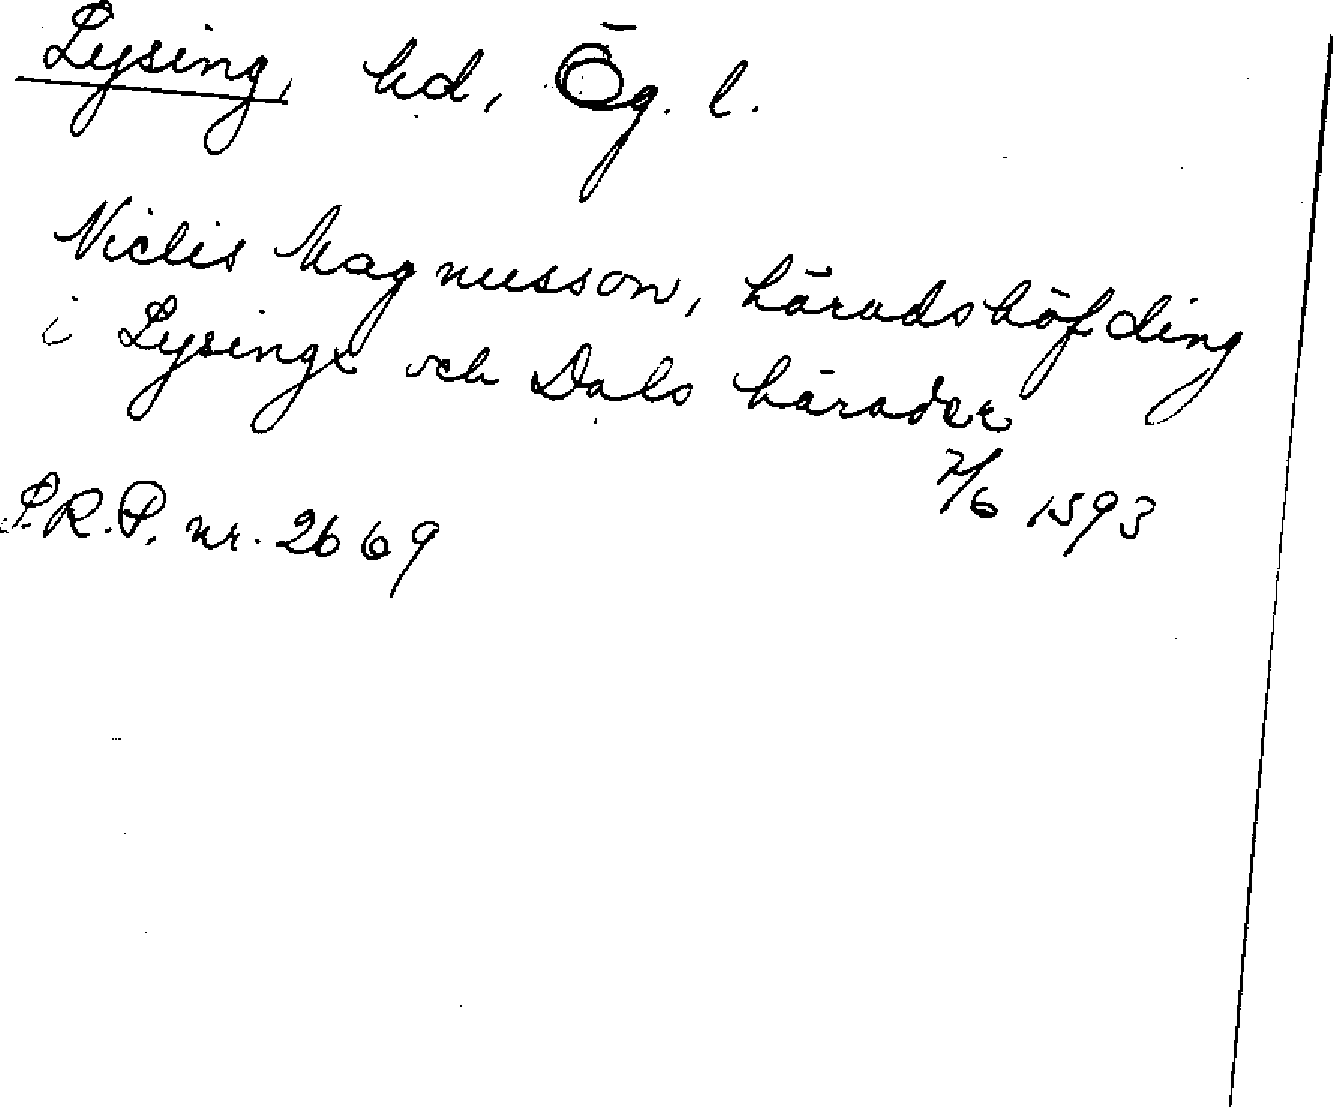 Lysing, hd, Ög. l.
Niclis Magnusson, häradshöfding
i Lysings och Dals härader
7/6 1393
S.R.P. nr. 2669